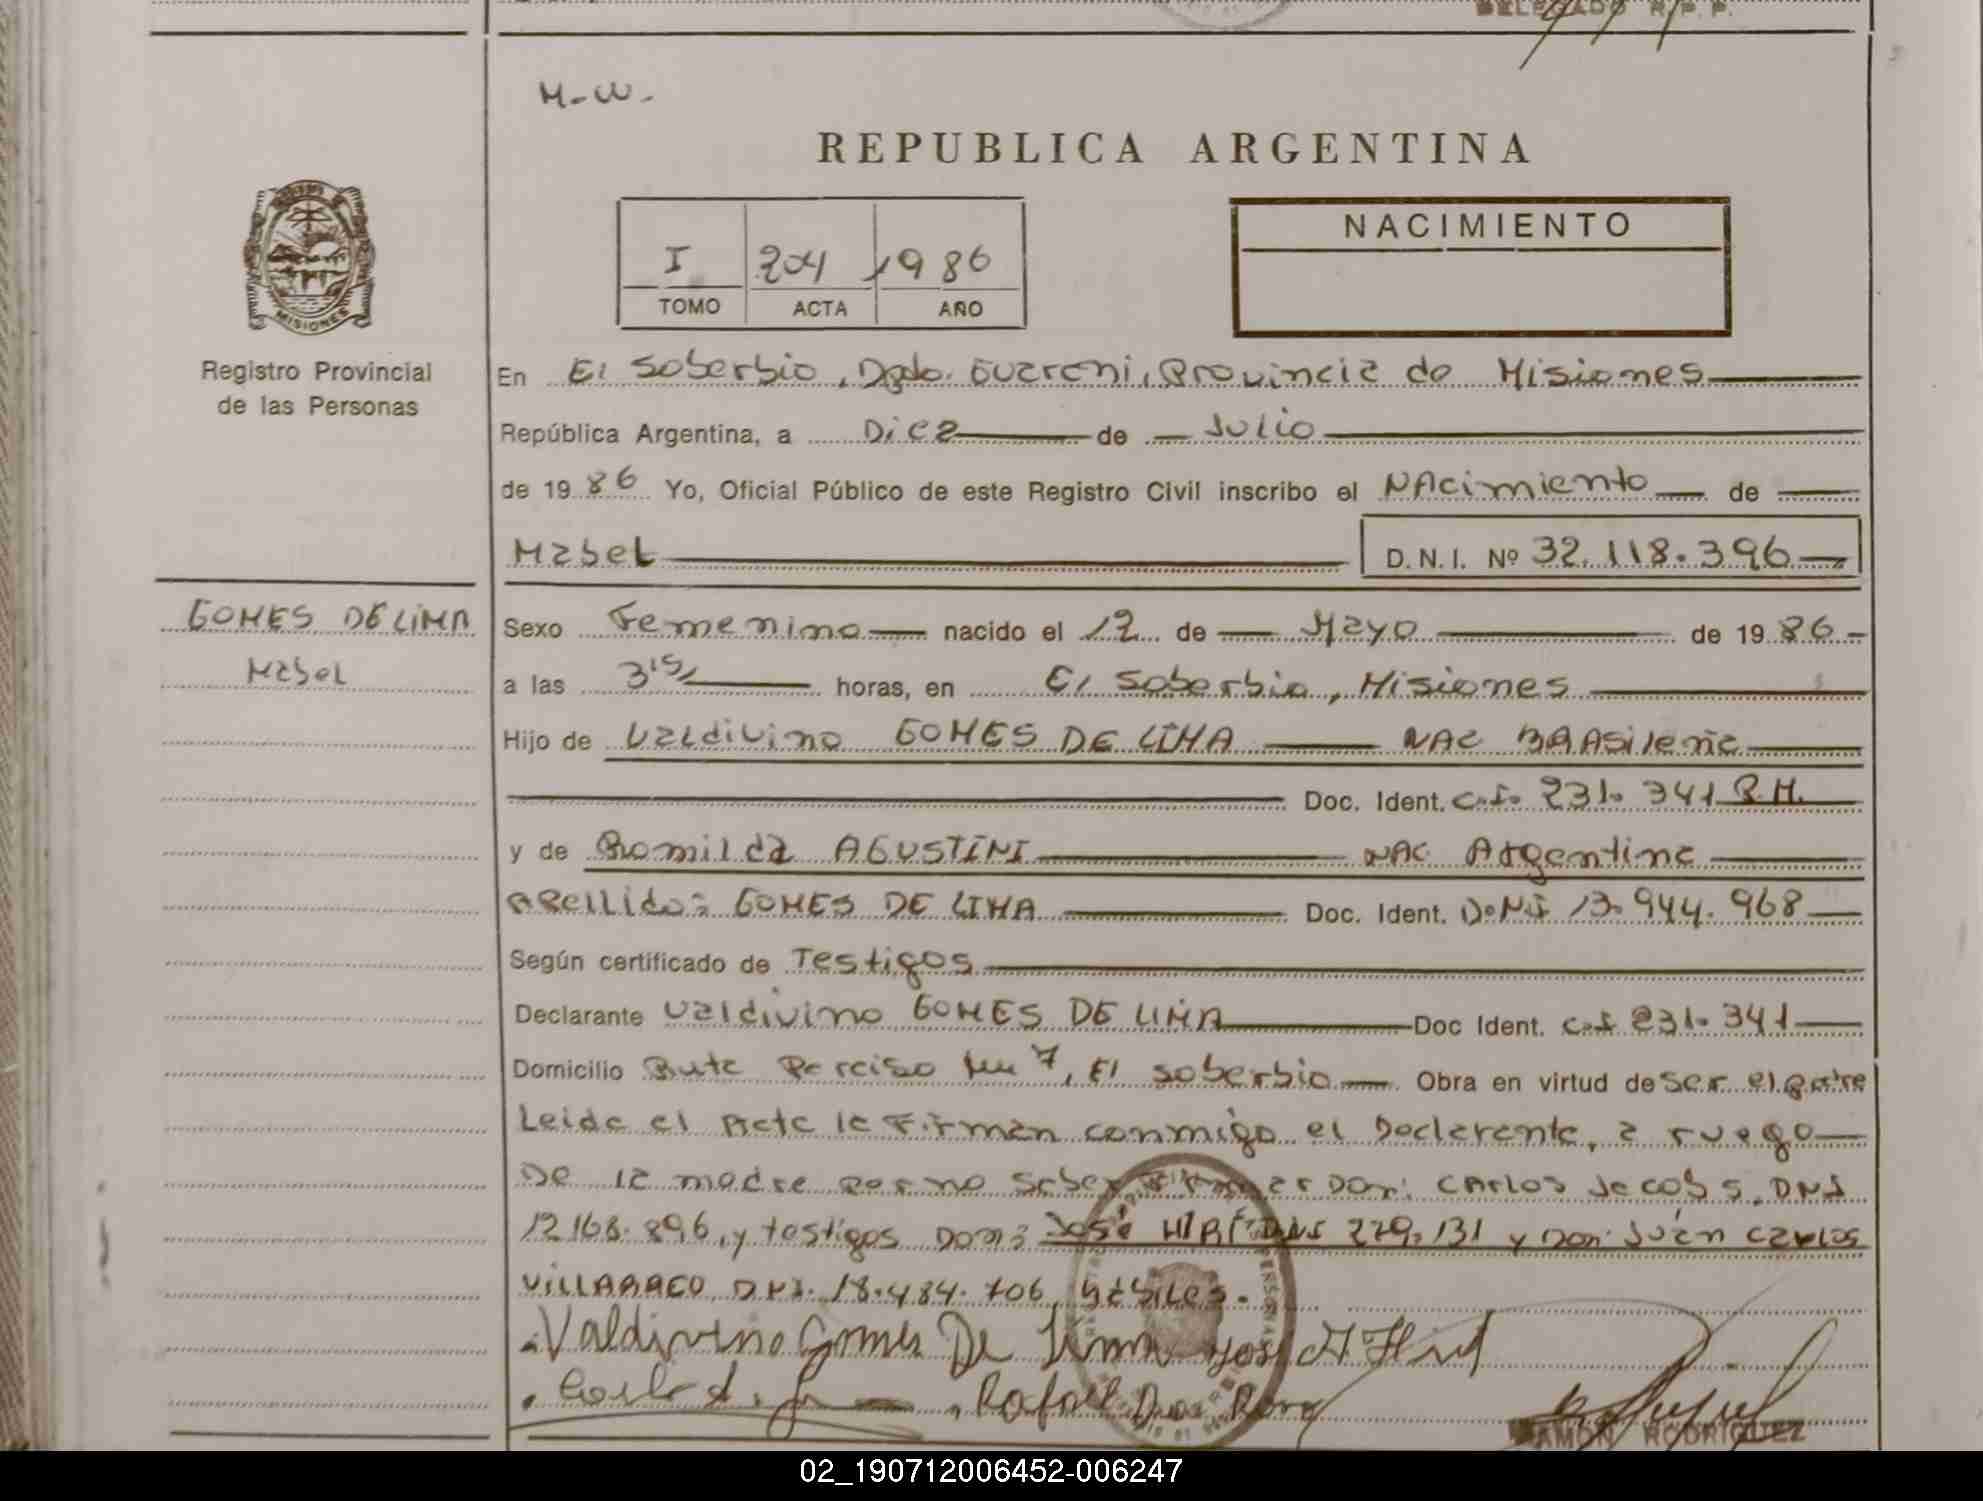 DELEGADO R.P.P.
M-W-
REPUBLICA ARGENTINA
MISIONES
Registro Provincial
de las Personas
I 204 1986
TOMO ACTA AÑO
NACIMIENTO
En El Soberbio, Dpto. Guarani, Provincia de Misiones
República Argentina, a Diez de Julio
de 1986 Yo, Oficial Público de este Registro Civil inscribo el NAcimiento de
Mabel D.N.I. Nº 32.118.396
GOMES DE LIMA
Mabel
Sexo Femenino nacido el 12 de Mayo de 1986
a las 3 15 horas, en El Soberbio, Misiones
Hijo de Valdivino GOMES DE LIMA NAC BRAsileña
Doc. Ident. C.I. 231.341 P.M.
y de Romilda AGUSTINI NAC Argentina
Apellido: GOMES DE LIMA Doc. Ident. D.N.I 13.944.968
Según certificado de Testigos
Declarante Valdivino GOMES DE LIMA Doc Ident. C.I 231.341
Domicilio Ruta Km 7, El Soberbio Obra en virtud de ser el padre
Leida el Acta la Firman conmigo el Declarante, a ruego
De la madre por no saber Firmar Don: CArlos Jacobs, DNI
12168.896, y testigos Don: José DNI 279.131 y Don: Juan Carlos
DNI. 18.484.706, habiles.
Valdivino Gomes De Lima José
Rafael
RAMON RODRIGUEZ
02_190712006452-006247